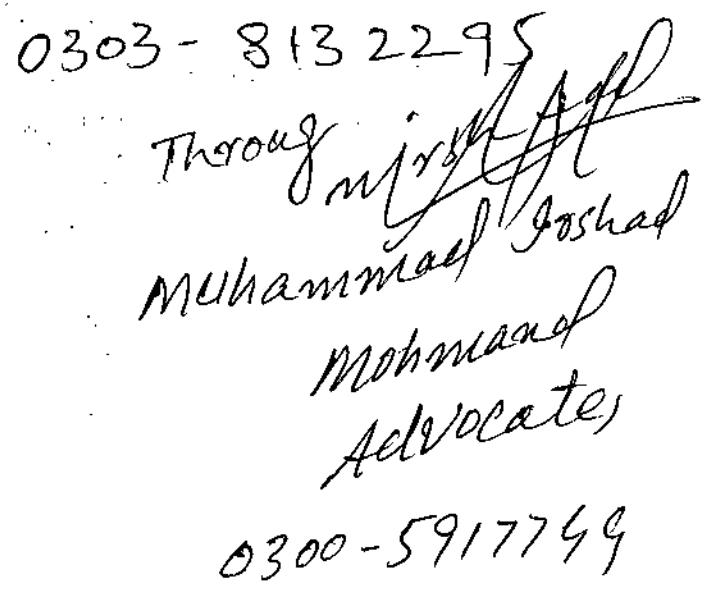 0303-8132295
Throug
Muhammad Irshad
Mohmand
Advocate,
0300-5917749